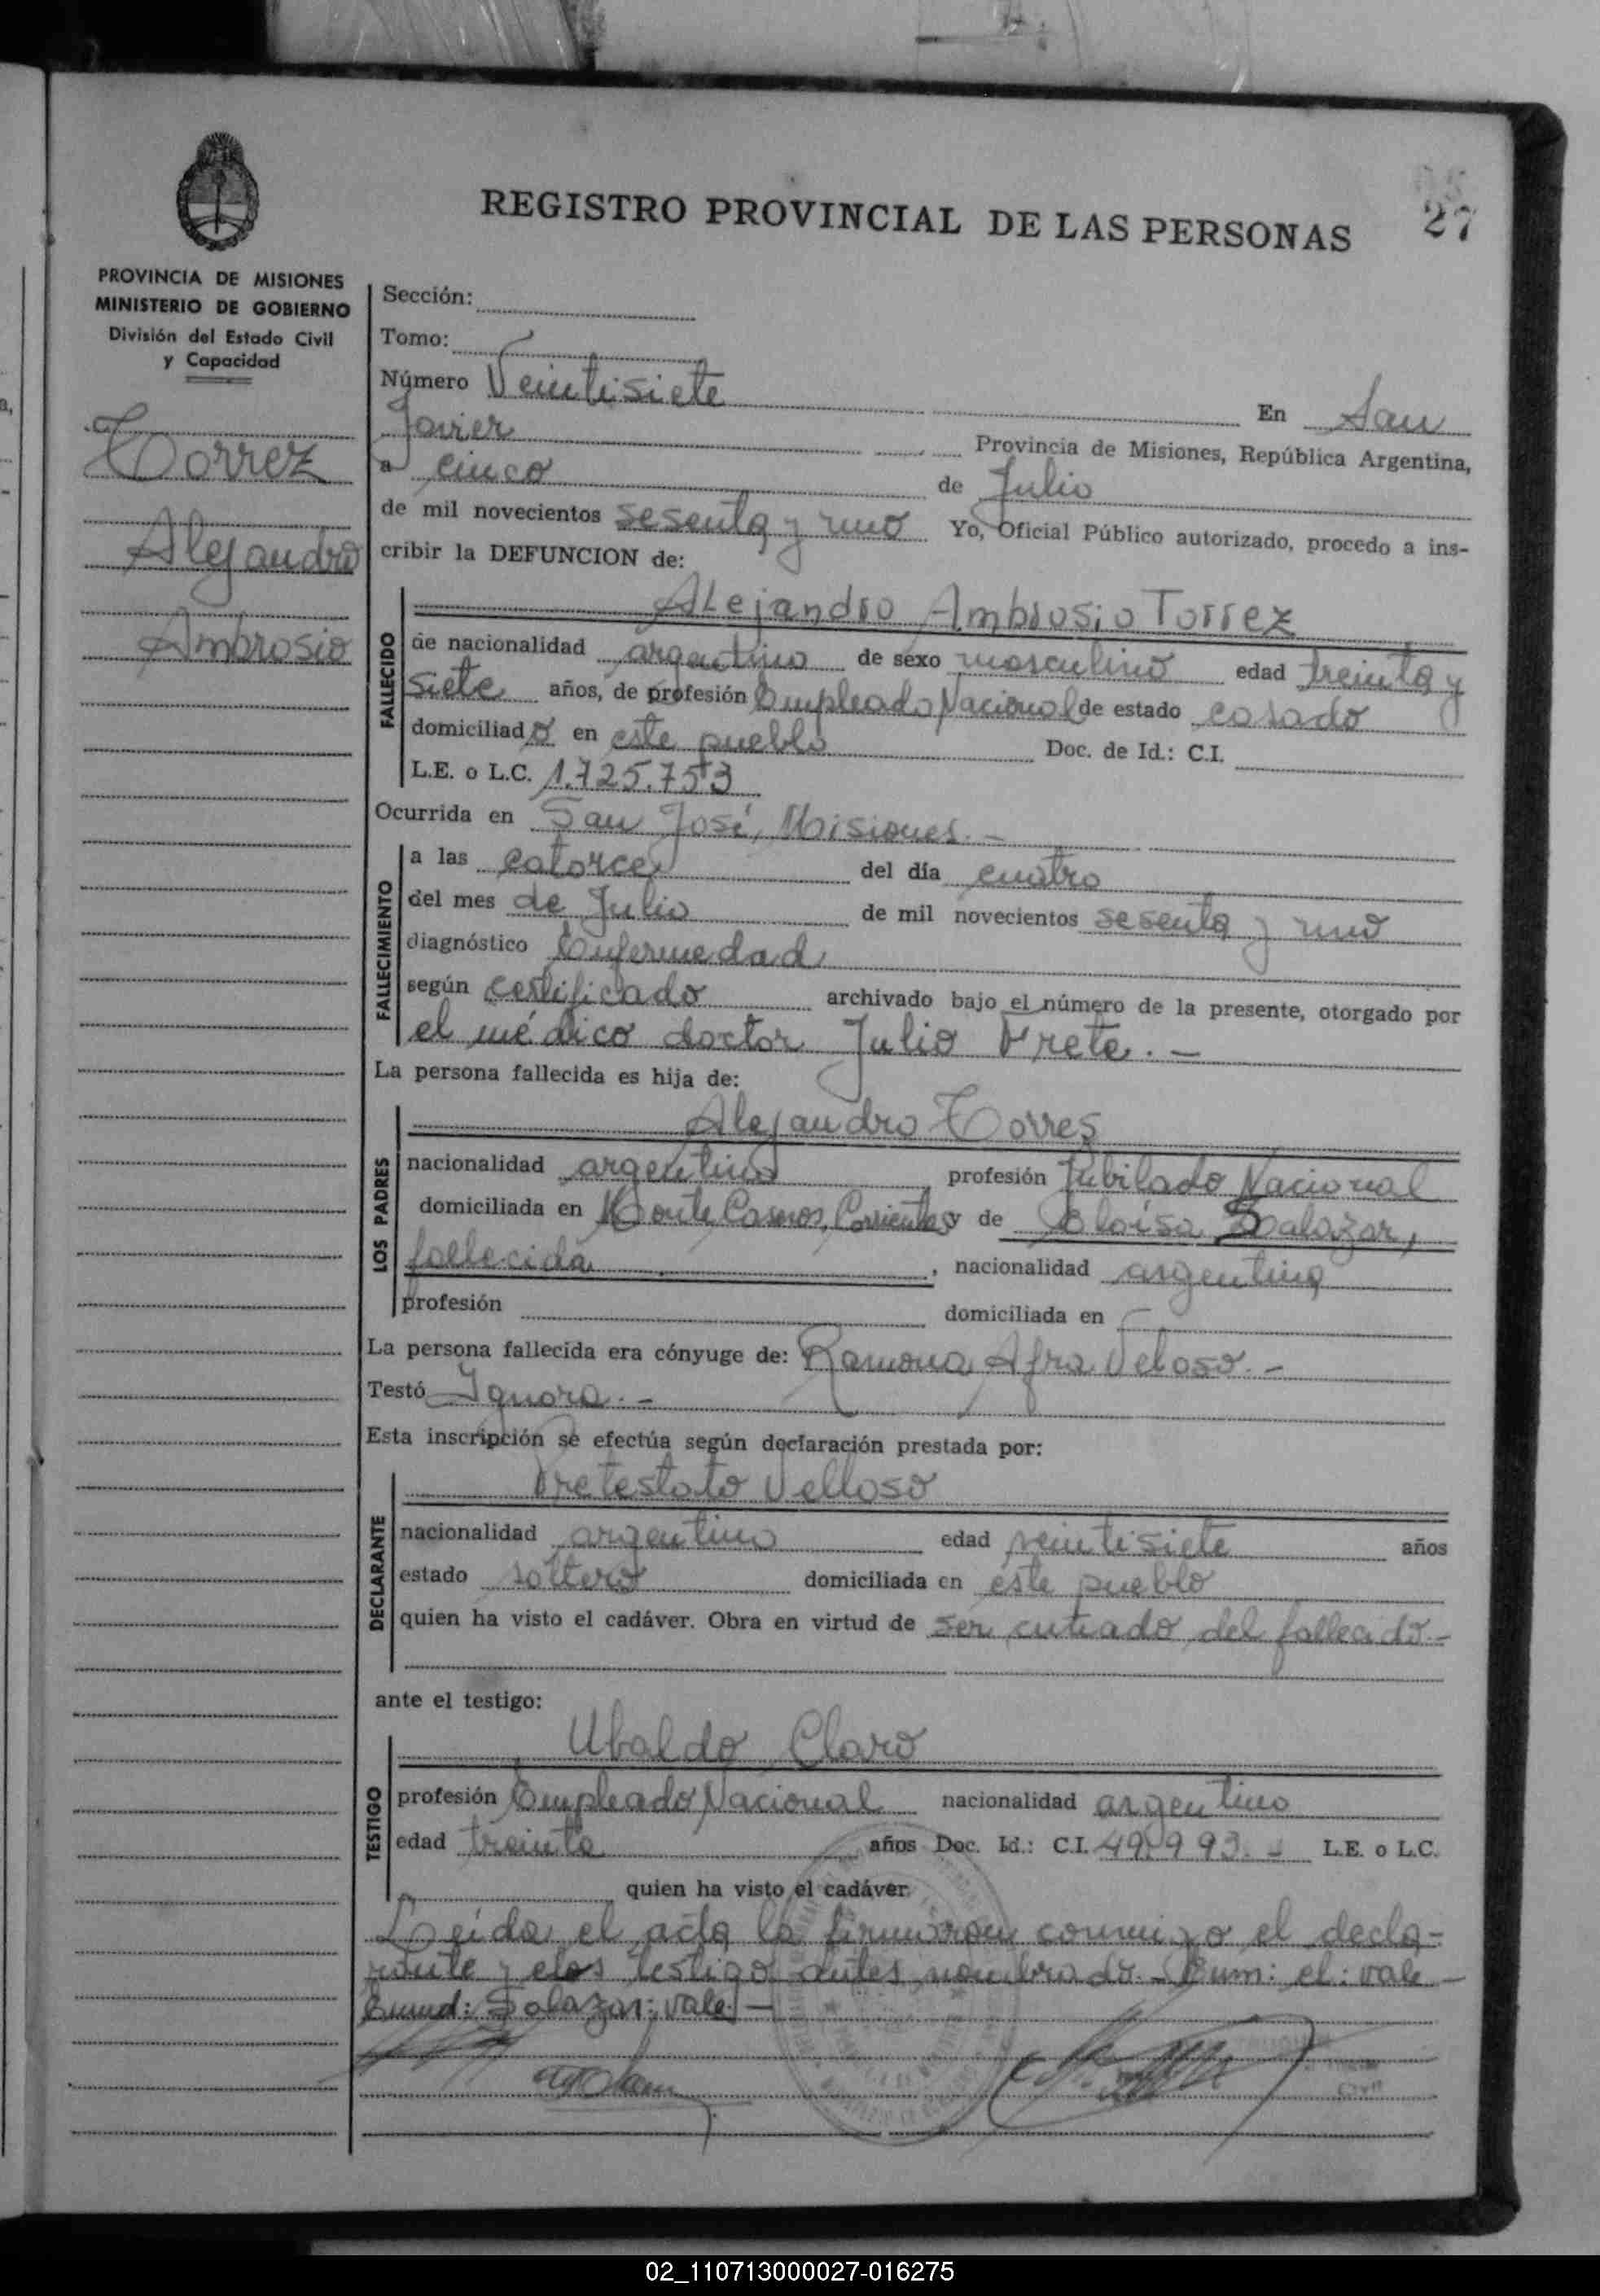 REGISTRO PROVINCIAL DE LAS PERSONAS
27
PROVINCIA DE MISIONES
MINISTERIO DE GOBIERNO
División del Estado Civil
y Capacidad
Torrez
Alejandro
Ambrosio
Sección:
Tomo:
Número Veintisiete En San
Javier Provincia de Misiones, República Argentina,
a cinco de Julio
de mil novecientos sesenta y uno Yo, Oficial Público autorizado, procedo a ins-
cribir la DEFUNCION de:
FALLECIDO
Alejandro Ambrosio Torrez
de nacionalidad argentino de sexo masculino edad treinta y
siete años, de profesión Empleado Nacional de estado casado
domiciliado en este pueblo Doc. de Id.: C.I.
L.E. o L.C. 1.725.753
Ocurrida en San José, Misiones.-
FALLECIMIENTO
a las catorce del día cuatro
del mes de Julio de mil novecientos sesenta y uno
diagnóstico Enfermedad
según certificado archivado bajo el número de la presente, otorgado por
el médico doctor Julio Prete.-
La persona fallecida es hija de:
LOS PADRES
Alejandro Torres
nacionalidad argentino profesión Jubilado Nacional
domiciliada en Monte Caseros, Corrientes y de Eloísa Salazar,
fallecida, nacionalidad argentina
profesión domiciliada en
La persona fallecida era cónyuge de: Ramona Afra Veloso.-
Testó Ignora.-
Esta inscripción se efectúa según declaración prestada por:
DECLARANTE
Pretestato Velloso
nacionalidad argentino edad veintisiete años
estado soltero domiciliada en este pueblo
quien ha visto el cadáver. Obra en virtud de ser cuñado del fallecido.-
ante el testigo:
TESTIGO
Ubaldo Claro
profesión Empleado Nacional nacionalidad argentino
edad treinta años Doc. Id.: C.I. 49.993.- L.E. o L.C.
quien ha visto el cadáver
Leída el acta la firmaron conmigo el decla-
rante y el testigo antes nombrado.- Enm: el: vale-
Enmd: Salazar: vale.-
02_110713000027-016275